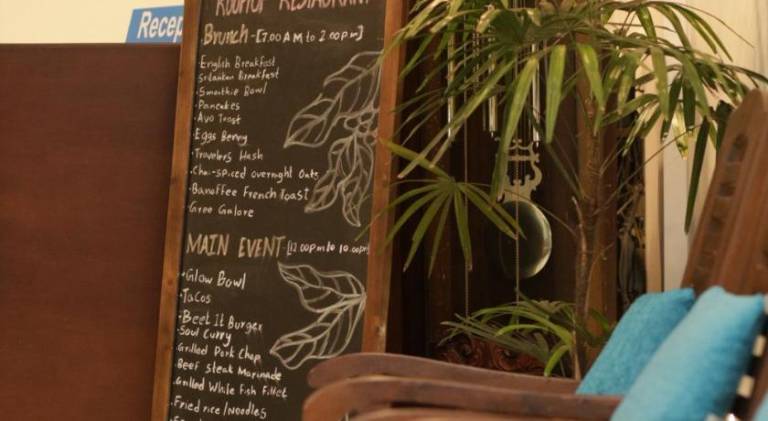 Recep
ROOFTOP RESTAURANT
Brunch - [7.00 AM to 2.00 pm]
· English Breakfast
Srilankan Breakfast
· Smoothie Bowl
· Pancakes
· Avo Toast
· Eggs Benny
· Travelers Hash
· Chai-spiced overnight Oats
· Banoffee French Toast
· Gree Galore
MAIN EVENT [12.00pm to 10.00pm
· Glow Bowl
· Tacos
· Beet It Burger
· Soul Curry
· Grilled Pork Chop
· Beef steak Marinade
· Grilled White Fish Fillet
· Fried rice/Noodles